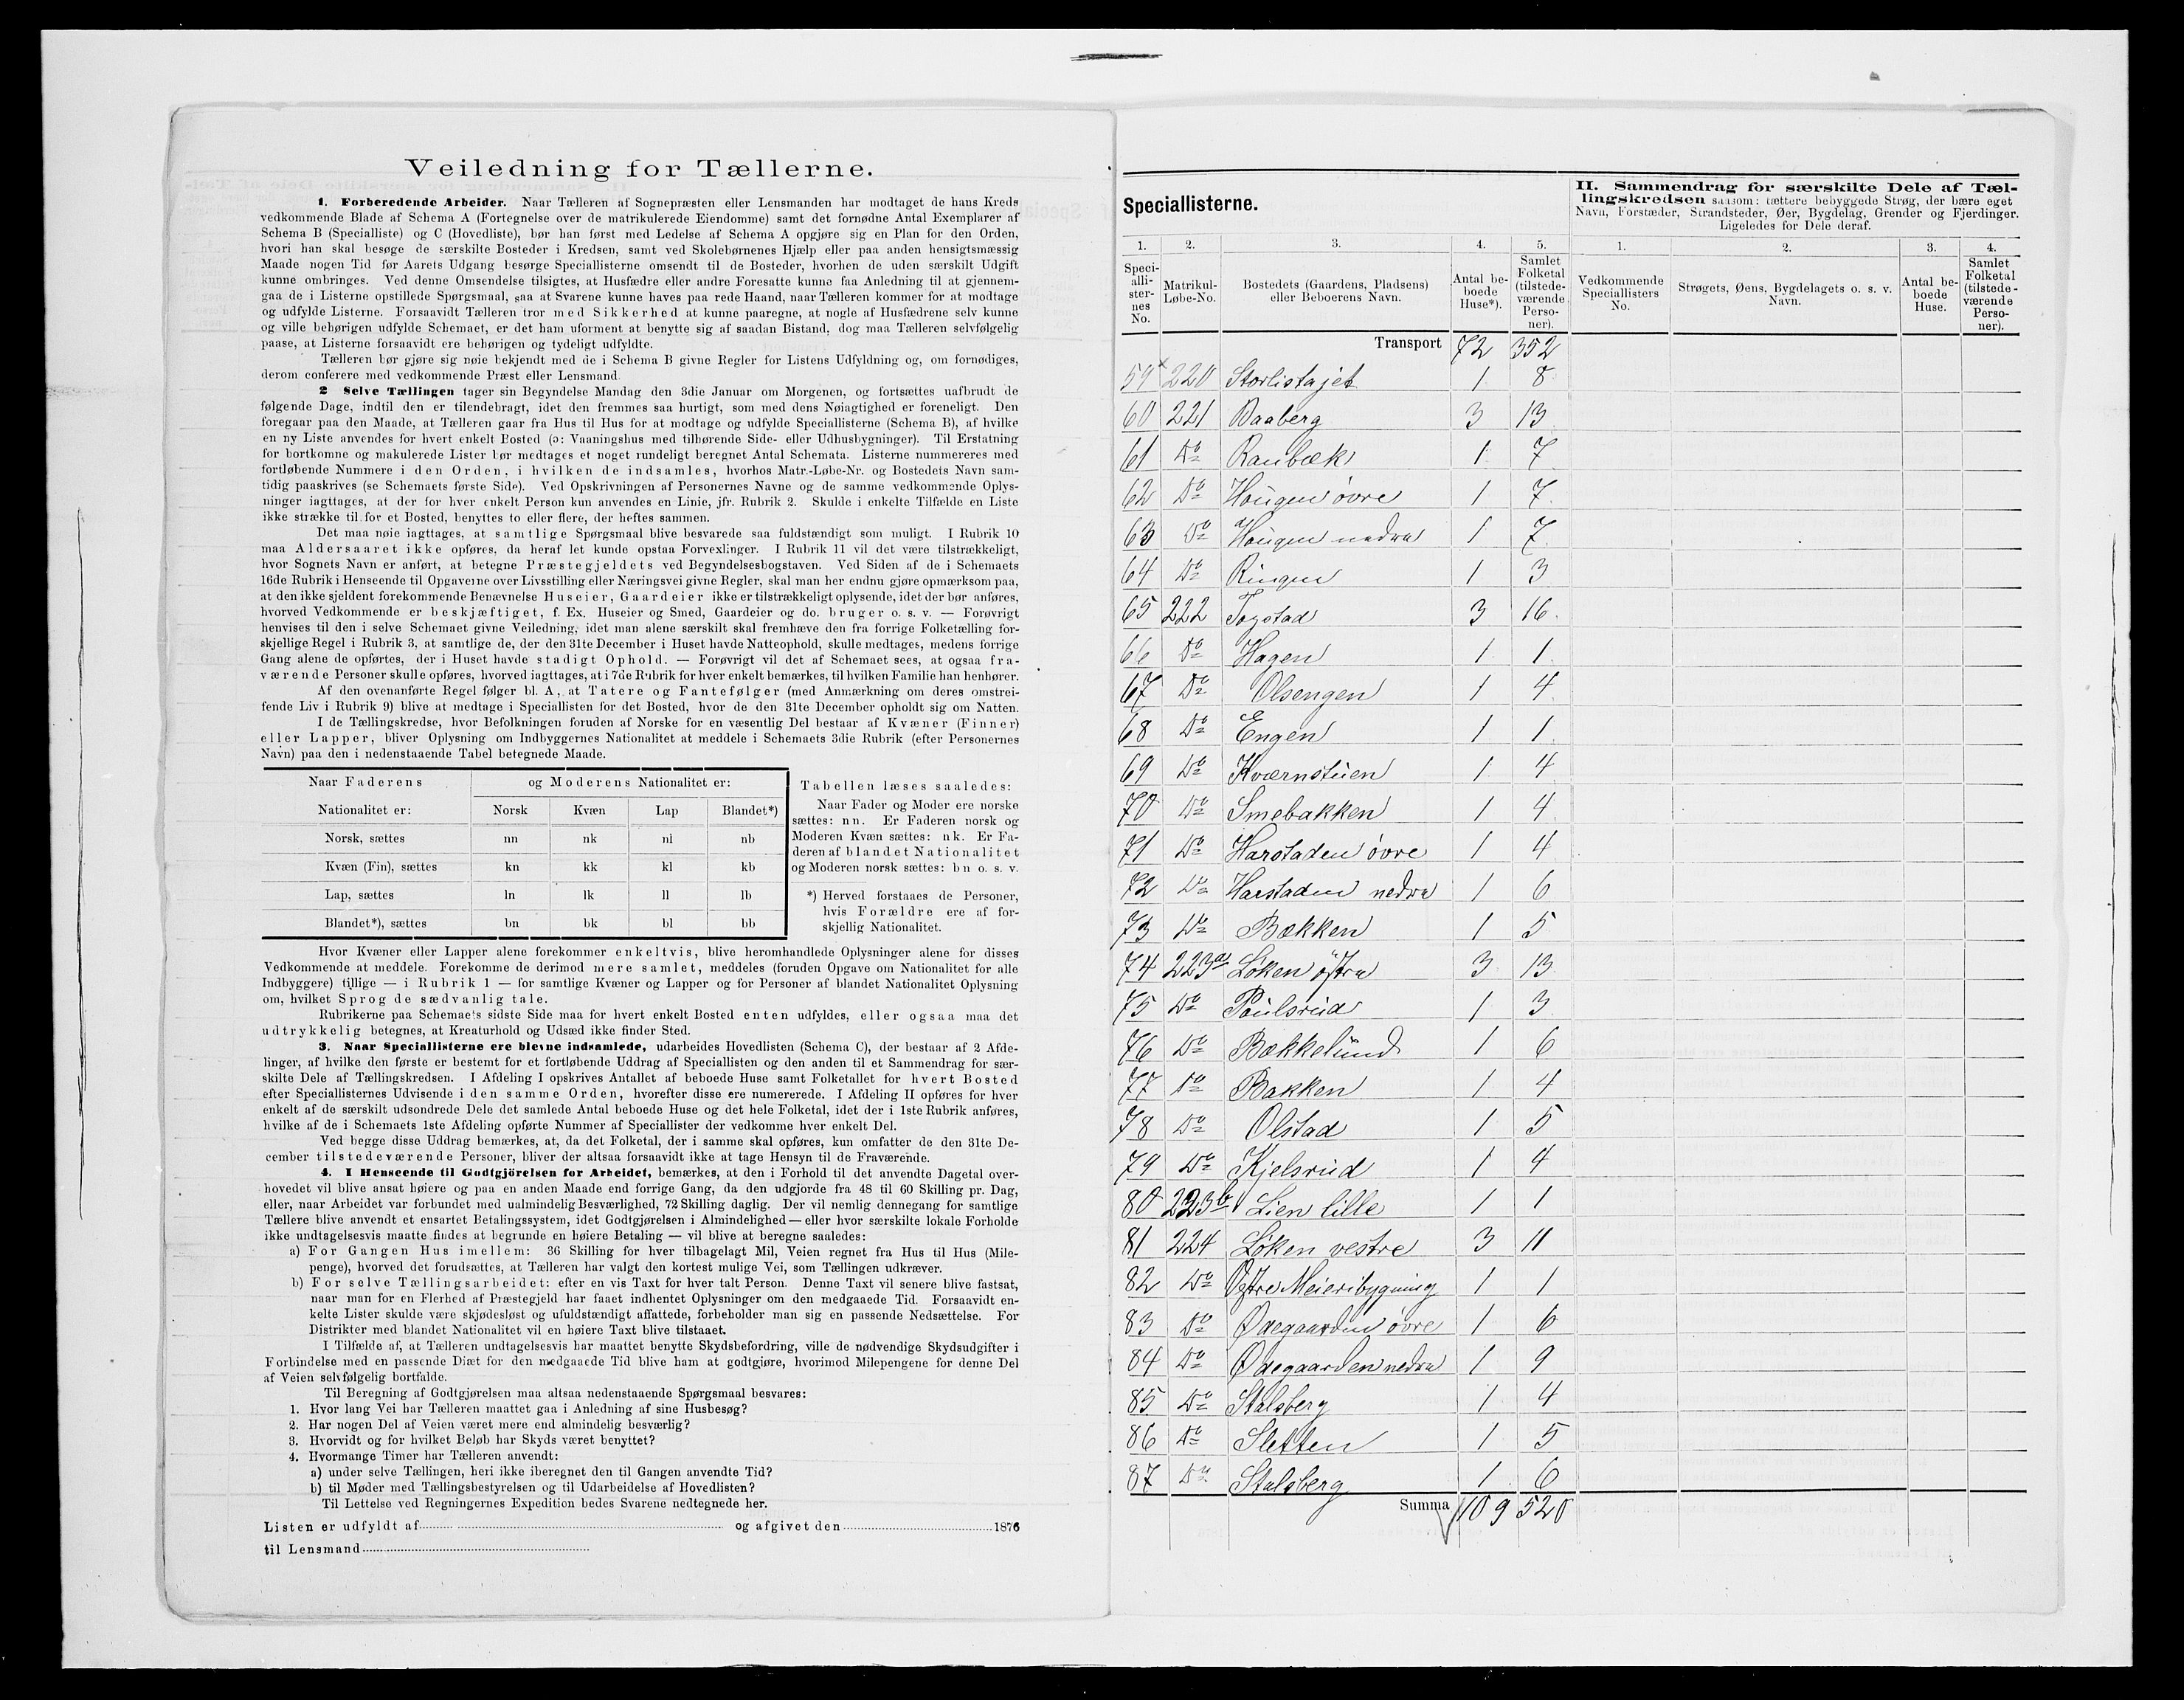 Veiledning for Tællerne.
1. Forberedende Arbeider. Naar Tælleren af Sognepræsten eller Lensmanden har modtaget de hans Kreds
vedkommende Blade af Schema A (Fortegnelse over de matrikulerede Eiendomme) samt det fornødne Antal Exemplarer af
Schema B (Specialliste) og C (Hovedliste), bør han først med Ledelse af Schema A opgjøre sig en Plan for den Orden,
hvori han skal besøge de særskilte Bosteder i Kredsen, samt ved Skolebørnenes Hjælp eller paa anden hensigtsmæssig
Maade nogen Tid før Aarets Udgang besørge Speciallisterne omsendt til de Bosteder, hvorhen de uden særskilt Udgift
kunne ombringes. Ved denne Omsendelse tilsigtes, at Husfædre eller andre Foresatte kunne faa Anledning til at gjennem-
gaa de i Listerne opstillede Spørgsmaal, saa at Svarene kunne haves paa rede Haand, naar Tælleren kommer for at modtage
og udfylde Listerne. Forsaavidt Tælleren tror med Sikkerhed at kunne paaregne, at nogle af Husfædrene selv kunne
og ville behørigen udfylde Schemaet, er det ham uforment at benytte sig af saadan Bistand, dog maa Tælleren selvfølgelig
paase, at Listerne forsaavidt ere behørigen og tydeligt udfyldte.
Tælleren bør gjøre sig nøie bekjendt med de i Schema B givne Regler for Listens Udfyldning og, om fornødiges,
derom conferere med vedkommende Præst eller Lensmand.
2 Selve Tællingen tager sin Begyndelse Mandag den 3die Januar om Morgenen, og fortsættes uafbrudt de
følgende Dage, indtil den er tilendebragt, idet den fremmes saa hurtigt, som med dens Nøiagtighed er foreneligt. Den
foregaar paa den Maade, at Tælleren gaar fra Hus til Hus for at modtage og udfylde Speciallisterne (Schema B), af hvilke
en ny Liste anvendes for hvert enkelt Bosted (ɔ: Vaaningshus med tilhørende Side- eller Udhusbygninger). Til Erstatning
for bortkomne og makulerede Lister bør medtages et noget rundeligt beregnet Antal Schemata. Listerne nummereres med
fortløbende Nummere i den Orden, i hvilken de indsamles, hvorhos Matr.-Løbe-Nr. og Bostedets Navn sam-
tidig paaskrives (se Schemaets første Side). Ved Opskrivningen af Personernes Navne og de samme vedkommende Oplys-
ninger iagttages, at der for hver enkelt Person kun anvendes en Linie, jfr. Rubrik 2. Skulde i enkelte Tilfælde en Liste
ikke strække til for et Bosted, benyttes to eller flere, der heftes sammen.
Det maa nøie iagttages, at samtlige Spørgsmaal blive besvarede saa fuldstændigt som muligt. I Rubrik 10
maa Aldersaaret ikke opføres, da heraf let kunde opstaa Forvexlinger. I Rubrik 11 vil det være tilstrækkeligt,
hvor Sognets Navn er anført, at betegne Præstegjeldets ved Begyndelsesbogstaven. Ved Siden af de i Schemaets
16de Rubrik i Henseende til Opgaverne over Livsstilling eller Næringsvei givne Regler, skal man her endnu gjøre opmærksom paa,
at den ikke sjeldent forekommende Benævnelse Huseier, Gaardeier ikke er tilstrækkeligt oplysende, idet der bør anføres,
hvorved Vedkommende er beskjæftiget, f. Ex. Huseier og Smed, Gaardeier og do. bruger o. s. v. — Forøvrigt
henvises til den i selve Schemaet givne Veiledning, idet man alene særskilt skal fremhæve den fra forrige Folketælling for-
skjellige Regel i Rubrik 3, at samtlige de, der den 31te December i Huset havde Natteophold, skulle medtages, medens forrige
Gang alene de opførtes, der i Huset havde stadigt Ophold. — Forøvrigt vil det af Schemaet sees, at ogsaa fra-
værende Personer skulle opføres, hvorved iagttages, at i 7de Rubrik for hver enkelt bemærkes, til hvilken Familie han henhører.
Af den ovenanførte Regel følger bl. A., at Tatere og Fantefølger (med Anmærkning om deres omstrei-
fende Liv i Rubrik 9) blive at medtage i Speciallisten for det Bosted, hvor de den 31te December opholdt sig om Natten.
I de Tællingskredse, hvor Befolkningen foruden af Norske for en væsentlig Del bestaar af Kvæner (Finner)
eller Lapper, bliver Oplysning om Indbyggernes Nationalitet at meddele i Schemaets 3die Rubrik (efter Personernes
Navn) paa den i nedenstaaende Tabel betegnede Maade.
Naar Faderens og Moderens Nationalitet er:
Nationalitet er: Norsk Kvæn Lap Blandet*)
Norsk, sættes nn nk nl nb
Kvæn (Fin), sættes kn kk kl kb
Lap, sættes ln lk ll lb
Blandet*), sættes bn bk bl bb
Tabellen læses saaledes:
Naar Fader og Moder ere norske
sættes: nn. Er Faderen norsk og
Moderen Kvæn sættes: nk. Er Fa-
deren af blandet Nationalitet
og Moderen norsk sættes: bn o. s. v.
*) Herved forstaaes de Personer,
hvis Forældre ere af for-
skjellig Nationalitet.
Hvor Kvæner eller Lapper alene forekommer enkeltvis, blive heromhandlede Oplysninger alene for disses
Vedkommende at meddele. Forekomme de derimod mere samlet, meddeles (foruden Opgave om Nationalitet for alle
Indbyggere) tillige — i Rubrik 1 — for samtlige Kvæner og Lapper og for Personer af blandet Nationalitet Oplysning
om, hvilket Sprog de sædvanlig tale.
Rubrikerne paa Schemaets sidste Side maa for hvert enkelt Bosted enten udfyldes, eller ogsaa maa det
udtrykkelig betegnes, at Kreaturhold og Udsæd ikke finder Sted.
3. Naar Speciallisterne ere blevne indsamlede, udarbeides Hovedlisten (Schema C), der bestaar af 2 Afde-
linger, af hvilke den første er bestemt for et fortløbende Uddrag af Speciallisten og den anden til et Sammendrag for sær-
skilte Dele af Tællingskredsen. I Afdeling I opskrives Antallet af beboede Huse samt Folketallet for hvert Bosted
efter Speciallisternes Udvisende i den samme Orden, hvorefter disse ere numererede. I Afdeling II opføres for hver
enkelt af de særskilt udsondrede Dele det samlede Antal beboede Huse og det hele Folketal, idet der i 1ste Rubrik anføres,
hvilke af de i Schemaets 1ste Afdeling opførte Nummer af Speciallister der vedkomme hver enkelt Del.
Ved begge disse Uddrag bemærkes, at, da det Folketal, der i samme skal opføres, kun omfatter de den 31te De-
cember tilstedeværende Personer, bliver der altsaa forsaavidt ikke at tage Hensyn til de Fraværende.
4. I Henseende til Godtgjörelsen for Arbeidet, bemærkes, at den i Forhold til det anvendte Dagetal over-
hovedet vil blive ansat høiere og paa en anden Maade end forrige Gang, da den udgjorde fra 48 til 60 Skilling pr. Dag,
eller, naar Arbeidet var forbundet med ualmindelig Besværlighed, 72 Skilling daglig. Der vil nemlig dennegang for samtlige
Tællere blive anvendt et ensartet Betalingssystem, idet Godtgjørelsen i Almindelighed — eller hvor særskilte lokale Forholde
ikke undtagelsesvis maatte findes at begrunde en høiere Betaling — vil blive at beregne saaledes:
a) For Gangen Hus imellem: 36 Skilling for hver tilbagelagt Mil, Veien regnet fra Hus til Hus (Mile-
penge), hvorved det forudsættes, at Tælleren har valgt den kortest mulige Vei, som Tællingen udkræver.
b) For selve Tællingsarbeidet: efter en vis Taxt for hver talt Person. Denne Taxt vil senere blive fastsat,
naar man for en Flerhed af Præstegjeld har faaet indhentet Oplysninger om den medgaaede Tid. Forsaavidt en-
kelte Lister skulde være skjødesløst og ufuldstændigt affattede, forbeholder man sig en passende Nedsættelse. For
Distrikter med blandet Nationalitet vil en høiere Taxt blive tilstaaet.
I Tilfælde af, at Tælleren undtagelsesvis har maattet benytte Skydsbefordring, ville de nødvendige Skydsudgifter i
Forbindelse med en passende Diæt for den medgaaede Tid blive ham at godtgjøre, hvorimod Milepengene for denne Del
af Veien selvfølgelig bortfalde.
Til Beregning af Godtgjørelsen maa altsaa nedenstaaende Spørgsmaal besvares:
1. Hvor lang Vei har Tælleren maattet gaa i Anledning af sine Husbesøg?
2. Har nogen Del af Veien været mere end almindelig besværlig?
3. Hvorvidt og for hvilket Beløb har Skyds været benyttet?
4. Hvormange Timer har Tælleren anvendt:
a) under selve Tællingen, heri ikke iberegnet den til Gangen anvendte Tid?
b) til Møder med Tællingsbestyrelsen og til Udarbeidelse af Hovedlisten?
Til Lettelse ved Regningernes Expedition bedes Svarene nedtegnede her.
Listen er udfyldt af og afgivet den 1876
til Lensmand
Speciallisterne.
II. Sammendrag for særskilte Dele af Tæl-
lingskredsen saasom: tættere bebyggede Strøg, der bære eget
Navn, Forstæder, Strandsteder, Øer, Bygdelag, Grender og Fjerdinger.
Ligeledes for Dele deraf.
1. 2. 3. 4. 5. 1. 2. 3. 4.
Speci-
alli-
ster-
nes
No.
Matrikul-
Løbe-No.
Bostedets (Gaardens, Pladsens)
eller Beboerens Navn.
Antal be-
boede
Huse*).
Samlet
Folketal
(tilstede-
værende
Perso-
ner).
Vedkommende
Speciallisters
No.
Strøgets, Øens, Bygdelagets o. s. v.
Navn.
Antal be-
boede
Huse.
Samlet
Folketal
(tilstede-
værende
Perso-
ner).
Transport 72 352
59 220 Storlistajet 1 8
60 221 Baaberg 3 13
61 Do Ranbæk 1 7
62 Do Hougen øvre 1 7
63 Do Hougen nedre 1 7
64 Do Ringen 1 3
65 222 Togstad 3 16
66 Do Hagen 1 1
67 Do Olsengen 1 4
68 Do Engen 1 1
69 Do Kværnstuen 1 4
70 Do Smebakken 1 4
71 Do Harstaden øvre 1 4
72 Do Harstaden nedre 1 6
73 Do Bækken 1 5
74 223a Løken østre 3 13
75 Do Poulsrud 1 3
76 Do Bækkelund 1 6
77 Do Bakken 1 4
78 Do Olstad 1 5
79 Do Kjelsrud 1 4
80 223b Lien lille 1 1
81 224 Løken vestre 3 11
82 Do Meieribygning 1 1
83 Do Ødegaarden øvre 1 6
84 Do Ødegaarden nedre 1 9
85 Do Stalsberg 1 4
86 Do Sletten 1 5
87 Do Stalsberg 1 6
Summa 109 520